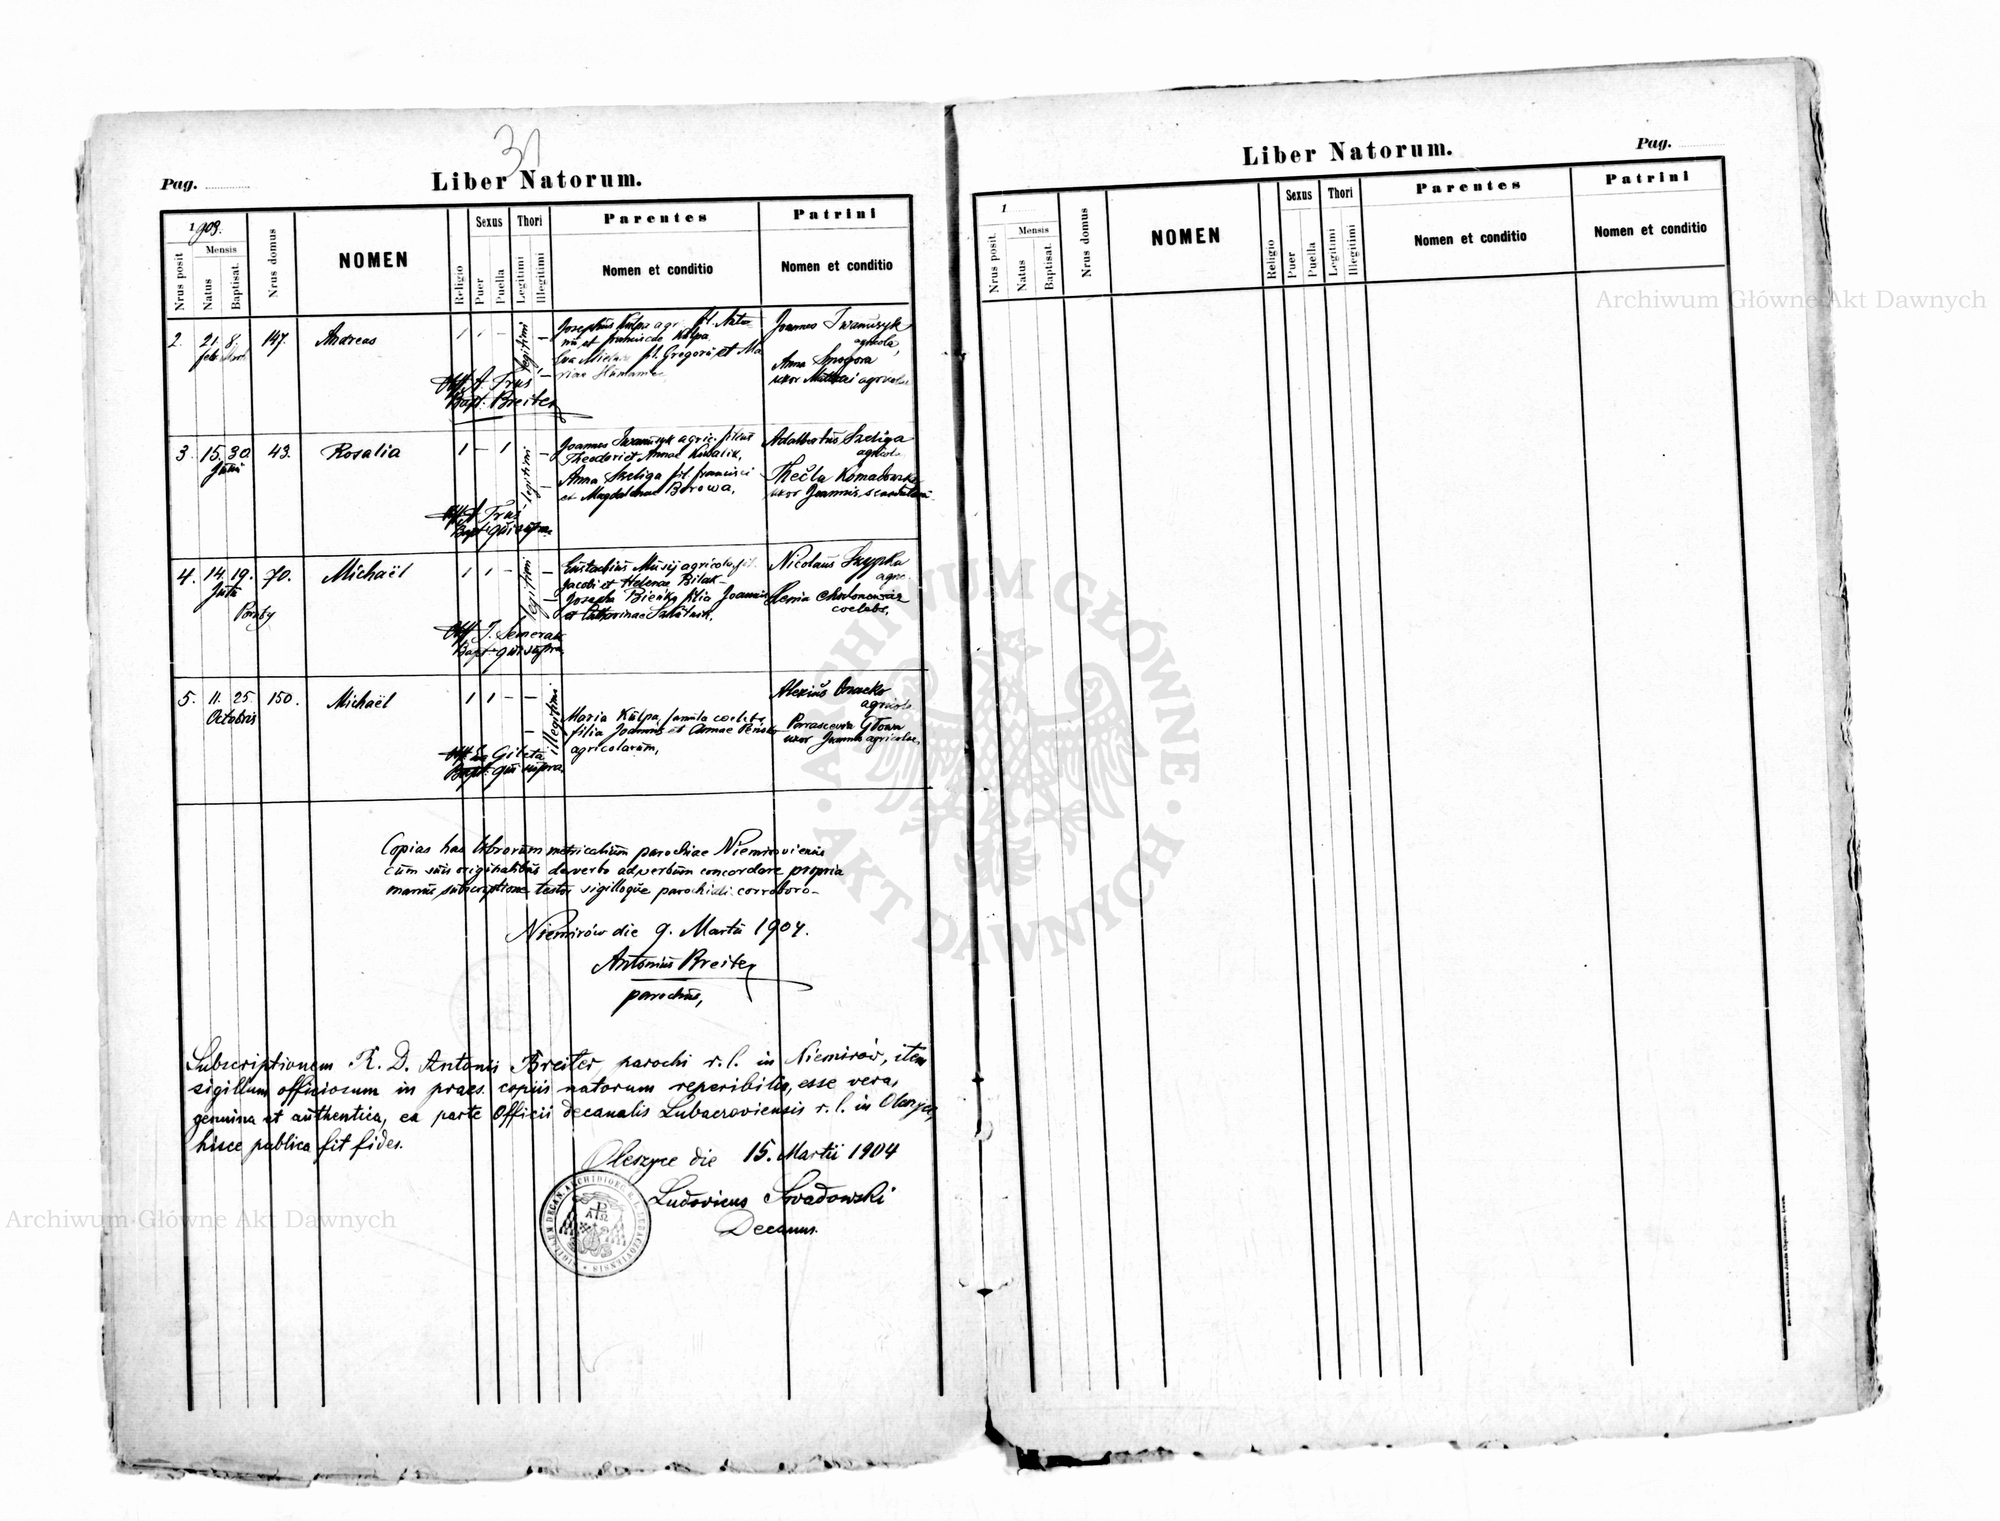 31
Pag.
Liber Natorum.
1903.
Nrus posit
Mensis
Natus
Baptisat.
Nrus domus
NOMEN
Religio
Sexus
Puer
Puella
Thori
Legitimi
Illegitimi
Parentes
Nomen et conditio
Patrini
Nomen et conditio
2. 21. 8. 147. Andreas 1 1 - legitimi -
Febr. Mart
Josephus Kulpa agr. fil. Anto-
nii et Franciscae Kulpa.
Eva fil. Gregorii et Ma-
riae
Joannes Iwanuszyk
agricola,
Anna
uxor Matthaei agricolae
Obst. A. Truś,
Bapt. Breiter
3. 15. 30. 43. Rosalia 1 - 1 legitimi -
Junii
Joannes Iwanuszyk agric. filius
Theodori et Annae Kowalik,
Anna Szeliga fil. Francisci
et Magdalenae Borowa,
Adalbertus Szeliga
agricola
Thecla
uxor Joannis
Obst. A. Truś
Bapt. qui supra
4. 14. 19. 70. Michaël 1 1 - legitimi -
Julii
Poręby
Eustachius Musij agricola fil.
Jacobi et Helenae Bilak -
Josepha Bieńko filia Joannis
et Catharinae
Nicolaus Szypka
agric.
coelebs,
Obst. J. Semerak
Bapt. qui supra
5. 11. 25. 150. Michaël 1 1 - - illegitimi
Octobris
Maria Kulpa, famula coelebs,
filia Joannis et Annae
agricolarum,
Alexius Onacko
agricola
Parasceva Głowa
uxor Joannis agricolae,
Obst. Giletа
Bapt. qui supra
Copias has librorum metricalium parochiae Niemiroviensis
cum suis originalibus de verbo ad verbum concordare propria
manus subscriptione testor sigilloque parochiali corroboro-
Niemirów die 9. Martii 1904.
Antonius Breiter
parochus,
Subscriptionem R. D. Antonii Breiter, parochi r. l. in Niemirów, item
sigillum officiosum in praes. copiis natorum reperibilia, esse vera,
genuina et authentica, ea parte Officii decanalis Lubaczoviensis r. l. in Oleszyce,
hisce publica fit fides.
Oleszyce die 15. Martii 1904
Ludovicus Swadowski
Decanus.
SIGILLUM DECAN. ARCHIDIOEC. R. L. LUBACZOVIENSIS
Liber Natorum.
Pag.
1
Nrus posit.
Mensis
Natus
Baptisat.
Nrus domus
NOMEN
Religio
Sexus
Puer
Puella
Thori
Legitimi
Illegitimi
Parentes
Nomen et conditio
Patrini
Nomen et conditio
Archiwum Główne Akt Dawnych
ARCHIWUM GŁÓWNE · AKT DAWNYCH ·
Archiwum Główne Akt Dawnych